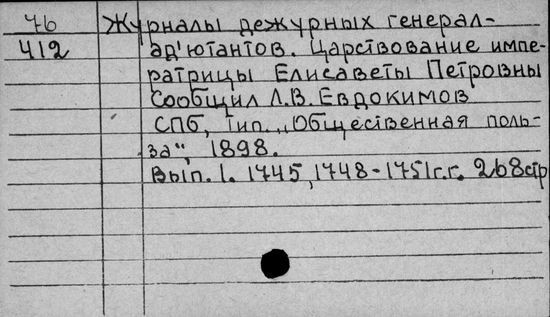 76 Журналы дежурных генерал-
412 ад'ютантов. Царствование импе-
ратрицы Елисаветы Петровны
Сообщил Л.В. Евдокимов
СПб, Тип. „Общественная поль-
за", 1898.
Вып. 1. 1745, 1748-1751г.г. 268стр